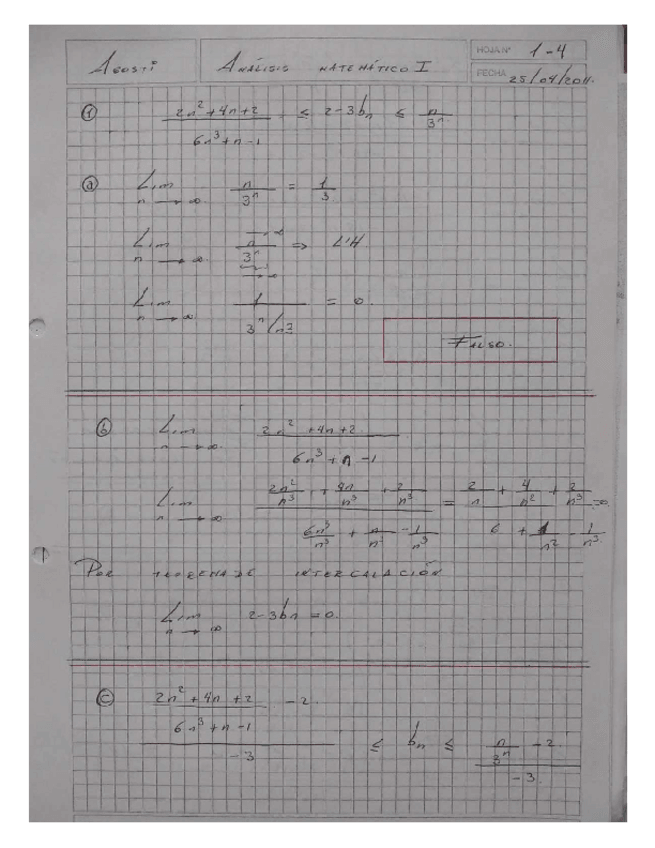 Agosti ANÁLISIS MATEMÁTICO I HOJA Nº 1-4
FECHA 25/04/2011.
① (2n²+4n+2)/(6n³+n-1) ≤ 2-3bn ≤ n/3ⁿ
ⓐ Lim n→∞ n/3ⁿ = 1/3
Lim n→∞ n/3ⁿ →∞ →∞ => L'H.
Lim n→∞ 1/(3ⁿ/n3) = 0.
FALSO.
ⓑ Lim n→∞ (2n²+4n+2)/(6n³+n-1)
Lim n→∞ (2n²/n³ + 4n/n³ + 2/n³)/(6n³/n³ + n/n³ - 1/n³) = (2/n + 4/n² + 2/n³)/(6 + 1/n² - 1/n³) =0.
POR TEOREMA DE INTERCALACIÓN
Lim n→∞ 2-3bn = 0.
ⓒ ((2n²+4n+2)/(6n³+n-1) -2)/(-3) ≤ bn ≤ (n/3ⁿ -2)/(-3).